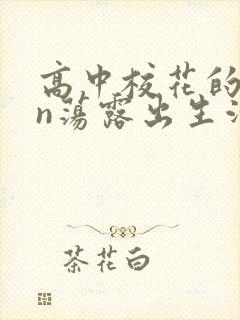 高中校花的
n荡露出生活
茶花白